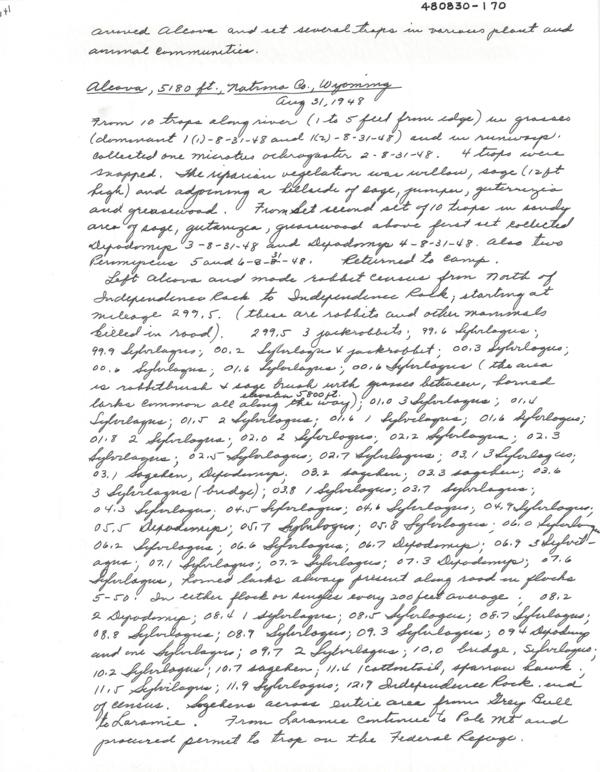 480830-170
arrived Alcova and set several traps in various plant and
animal communities.
Alcova, 5180 ft., Natrona Co., Wyoming
Aug 31, 1948
From 10 traps along river (1 to 5 feet from edge) in grasses
(dominant 1(1)-8-31-48 and 1(2)-8-31-48) and in runways.
Collected one microtus ochrogaster 2-8-31-48. 4 traps were
snapped. The riparian vegetation was willow, sage (12 ft
high) and adjoining a hillside of sage, juniper, guterrezia
and greasewood. From set second set of 10 traps in sandy
area of sage, guterrezia, greasewood above first set collected
Dipodomys 3-8-31-48 and Dipodomys 4-8-31-48. Also two
Peromyscus 5 and 6-8-31-48. Returned to camp.
Left Alcova and made rabbit census from North of
Independence Rock to Independence Rock, starting at
mileage 299.5. (these are rabbits and other mammals
killed in road). 299.5 3 jackrabbits; 99.6 Sylvilagus;
99.9 Sylvilagus; 00.2 Sylvilagus & jackrabbit; 00.3 Sylvilagus;
00.6 Sylvilagus; 01.6 Sylvilagus; 00.6 Sylvilagus (the area
is rabbitbrush & sage brush with grasses between, horned
elevation 5800 ft.
larks common all along the way); 01.0 3 Sylvilagus; 01.4
Sylvilagus; 01.5 2 Sylvilagus; 01.6 1 Sylvilagus; 01.6 Sylvilagus;
01.8 2 Sylvilagus; 02.0 2 Sylvilagus; 02.2 Sylvilagus; 02.3
Sylvilagus; 02.5 Sylvilagus; 02.7 Sylvilagus; 03.1 3 Sylvilagus;
03.1 Sagehen, Dipodomys; 03.2 sagehen; 03.3 sagehen; 03.6
3 Sylvilagus (bridge); 03.8 1 Sylvilagus; 03.7 Sylvilagus;
04.3 Sylvilagus; 04.5 Sylvilagus; 04.6 Sylvilagus; 04.9 Sylvilagus;
05.5 Dipodomys; 05.7 Sylvilagus; 05.8 Sylvilagus; 06.0 Sylvilagus
06.2 Sylvilagus; 06.6 Sylvilagus; 06.7 Dipodomys; 06.9 3 Sylvil-
agus; 07.1 Sylvilagus; 07.2 Sylvilagus; 07.3 Dipodomys; 07.6
Sylvilagus, horned larks always present along road in flocks
5-50. In either flock or singles every 200 feet average. 08.2
2 Dipodomys; 08.4 1 Sylvilagus; 08.5 Sylvilagus; 08.7 Sylvilagus;
08.8 Sylvilagus; 08.9 Sylvilagus; 09.3 Sylvilagus; 09.4 Dipodomys
and one Sylvilagus; 09.7 2 Sylvilagus; 10.0 bridge, Sylvilagus;
10.2 Sylvilagus; 10.7 sagehen; 11.4 1 cottontail, sparrow hawk;
11.5 Sylvilagus; 11.9 Sylvilagus; 12.9 Independence Rock, end
of census. Sagehens across entire area from Grey Bull
to Laramie. From Laramie continue to Pole Mt and
procured permit to trap on the Federal Refuge.